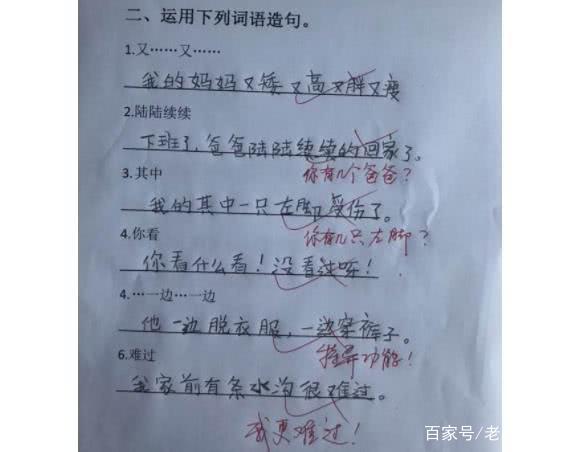 二、运用下列词语造句。
1.又……又……
我的妈妈又矮又高又胖又瘦
2.陆陆续续
下班了，爸爸陆陆续续的回家了。
你有几个爸爸？
3.其中
我的其中一只左脚受伤了。
你有几只左脚？
4.你看
你看什么看！没看过呀！
4.…一边…一边
他一边脱衣服，一边穿裤子。
特异功能！
6.难过
我家前有条水沟很难过。
我更难过！
百家号/老